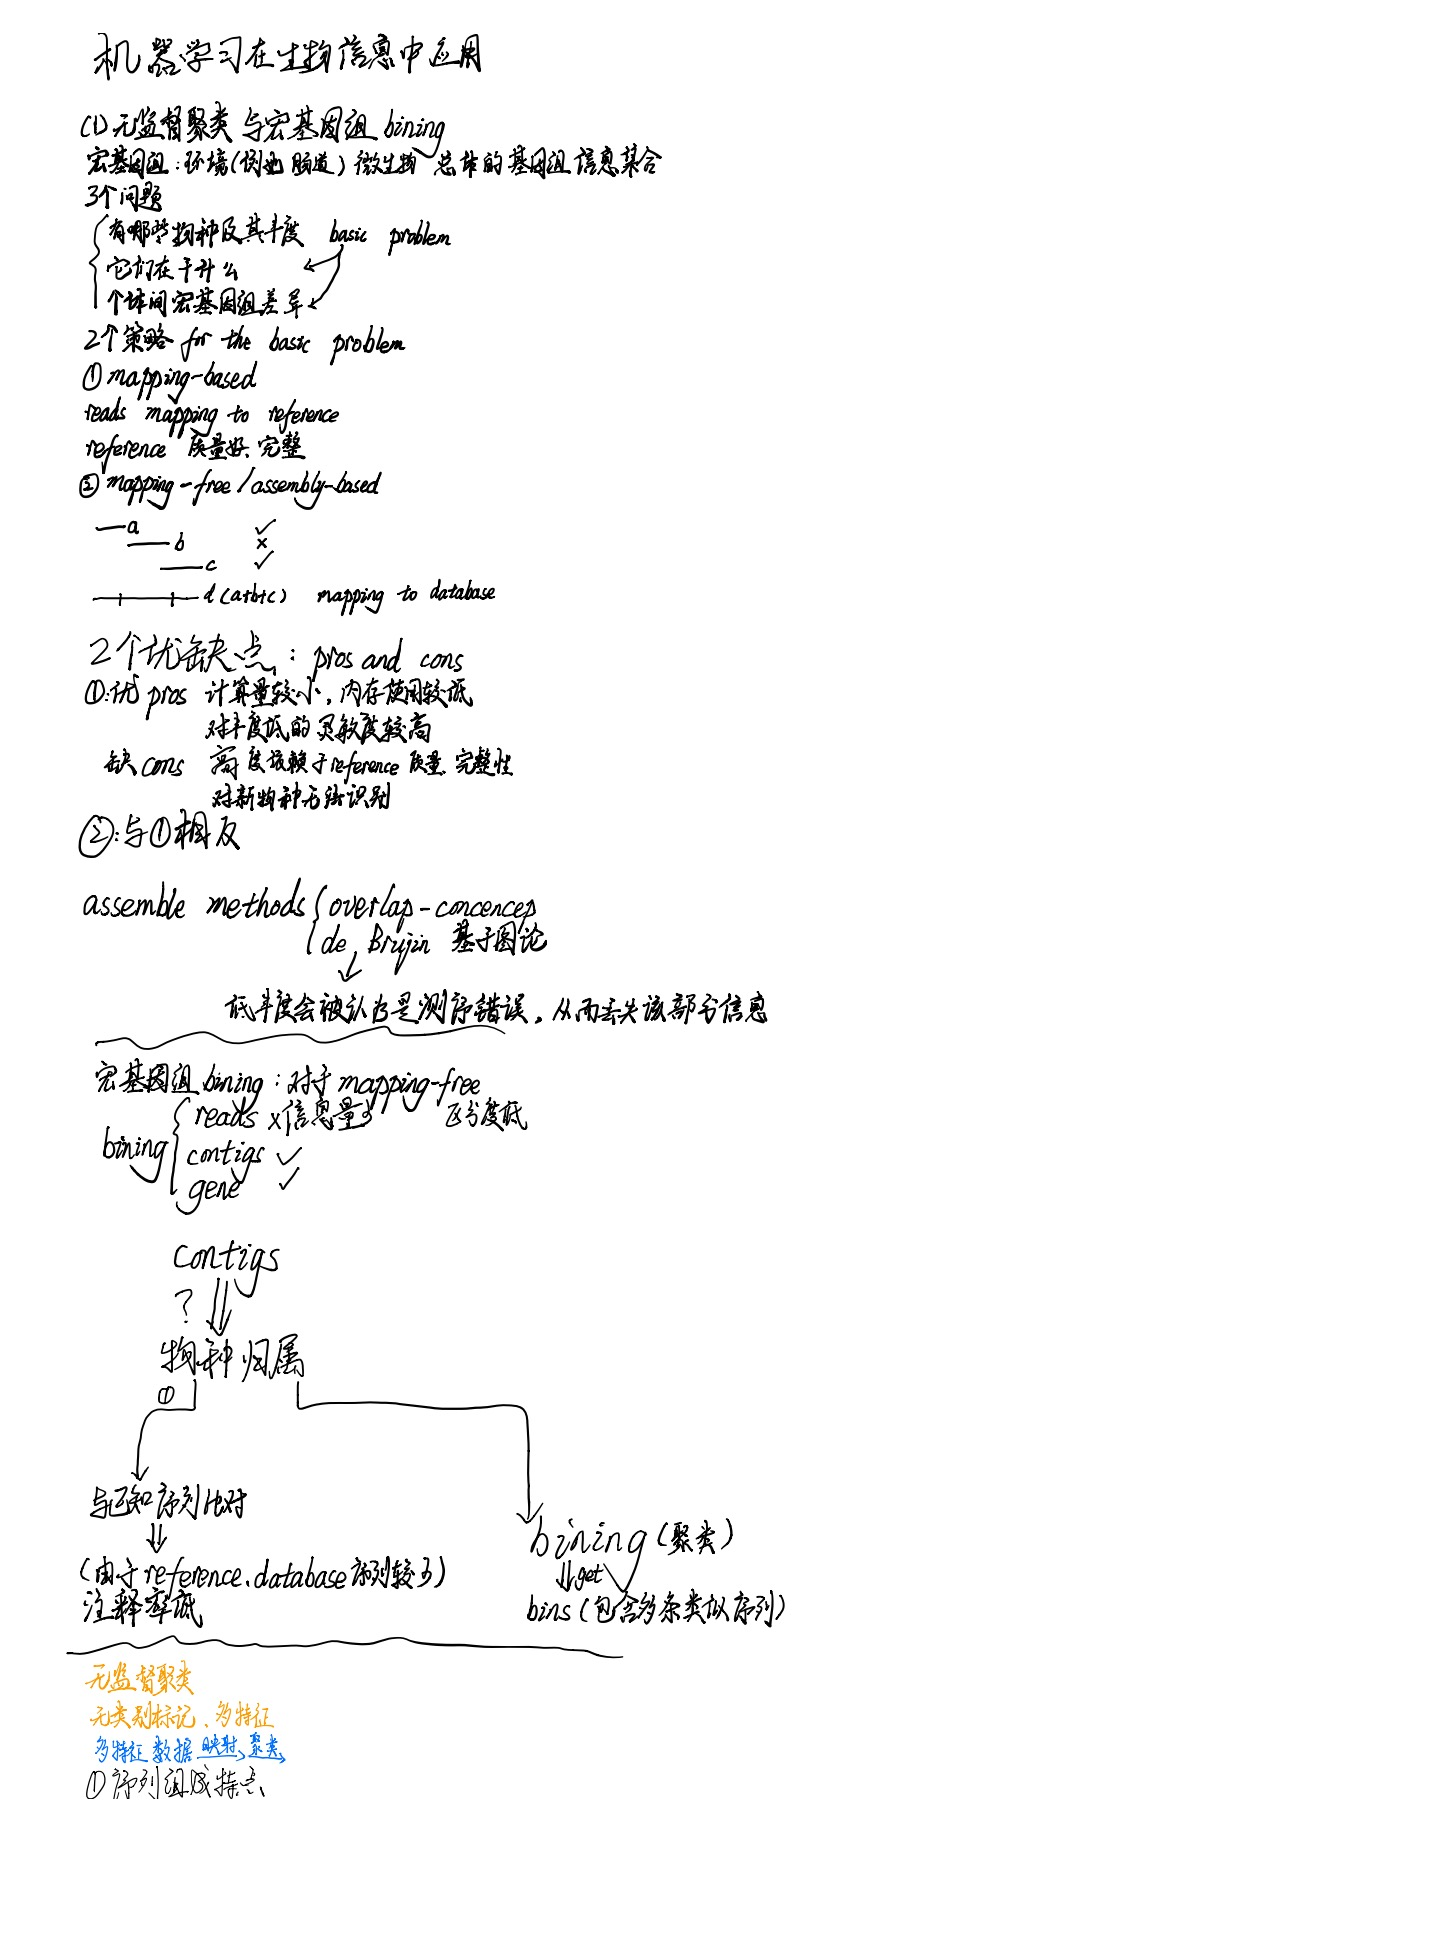 机器学习在生物信息中应用
(1)无监督聚类与宏基因组 bining
宏基因组:环境(例如肠道)微生物总体的基因组信息集合
3个问题
有哪些物种及其丰度 basic problem
它们在干什么
个体间宏基因组差异
2个策略 for the basic problem
① mapping-based
reads mapping to reference
reference 质量好、完整
② mapping-free/assembly-based
a ✓
b ×
c ✓
d(a+b+c) mapping to database
2个优缺点:pros and cons
①:优 pros 计算量较小,内存使用较低
对丰度低的灵敏度较高
缺 cons 高度依赖于reference 质量、完整性
对新物种无法识别
②:与①相反
assemble methods { overlap-concencep
de Brujin 基于图论
低丰度会被认为是测序错误,从而丢失该部分信息
宏基因组 bining:对于mapping-free
reads ×信息量少 区分度低
bining
contigs ✓
gene ✓
contigs
?
物种归属
①
与已知序列比对
bining(聚类)
(由于reference、database序列较少)
get
注释率低
bins(包含多条类似序列)
无监督聚类
无类别标记、多特征
多特征数据 映射 聚类
①序列组成特点